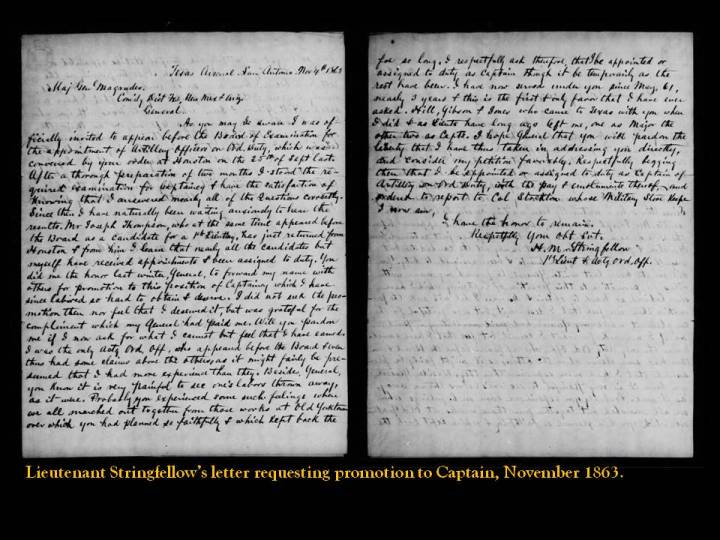 Texas Arsenal San Antonio Nov 4th 1863
Maj Gen Magruder.
Com'dg Dist Txs, New Mex & Ariz.
General.
As you may be aware I was of-
ficially invited to appear before the Board of Examination for
the appointment of Artillery Officers on Ord Duty, which was
convened by your order at Houston on the 25th of Sept last.
After a thorough preparation of two months I stood the re-
quired examination for Captaincy & have the satisfaction of
knowing that I answered nearly all of the Questions correctly.
Since then I have naturally been waiting anxiously to hear the
results. Mr Joseph Thompson, who at the same time appeared before
the Board as a candidate for a 1st Lieutcy, has just returned from
Houston & from him I learn that nearly all the candidates but
myself have received appointments & been assigned to duty. You
did me the honor last winter, General, to forward my name with
others for promotion to this position of Captaincy which I have
since labored so hard to obtain & deserve. I did not seek the pro-
motion then nor feel that I deserved it, but was grateful for the
compliment which my General had paid me. Will you pardon
me if I now ask for what I cannot but feel that I have earned.
I was the only Actg Ord. Off. who appeared before the Board &
thus had some claims above the others, as it might fairly be pre-
sumed that I had more experience than they. Beside, General,
you know it is very painful to see one's labors thrown away,
as it were. Probably you experienced some such feelings when
we all marched out together from those works at Old Yorktown
over which you had planned so faithfully & which kept back the
foe so long. I respectfully ask therefore, that I be appointed or
assigned to duty as Captain though it be temporarily as the
rest have been. I have now served under you since May, 61,
nearly 3 years & this is the first & only favor that I have ever
asked. Hill, Gibson & Jones who came to Texas with you when
I did & as Lieuts have long ago left me, one as Major the
other two as Capts. I hope General that you will pardon the
liberty that I have thus taken in addressing you directly,
and consider my petition favorably. Respectfully begging
then that I be appointed or assigned to duty as Captain of
Artillery on Ord Duty, with the pay & emoluments thereof, and
ordered to report to Col Stockton whose Military Store Keeper
I now am,
I have the honor to remain,
Respectfully Your Obt Svt.
H. M. Stringfellow
1st Lieut & Actg Ord. Off.
Lieutenant Stringfellow's letter requesting promotion to Captain, November 1863.